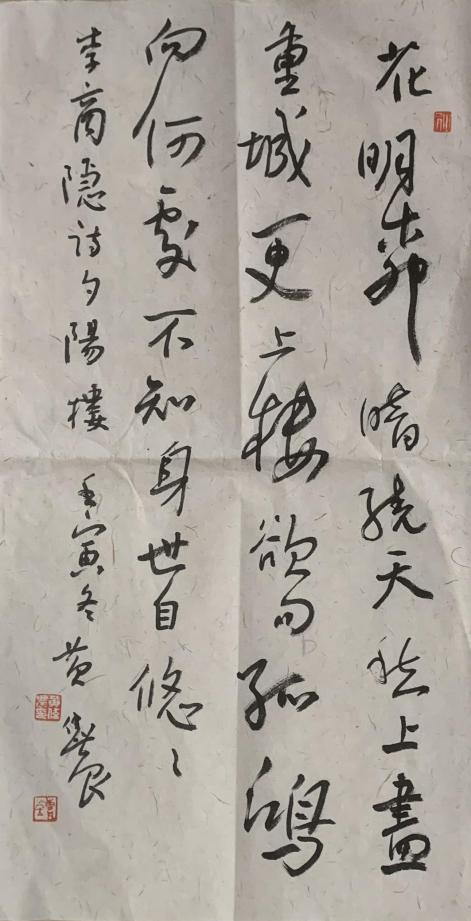 花明柳暗繞天愁上盡
重城更上樓欲問孤鴻
向何處不知身世自悠〻
李商隱詩夕陽樓 壬寅冬 黄